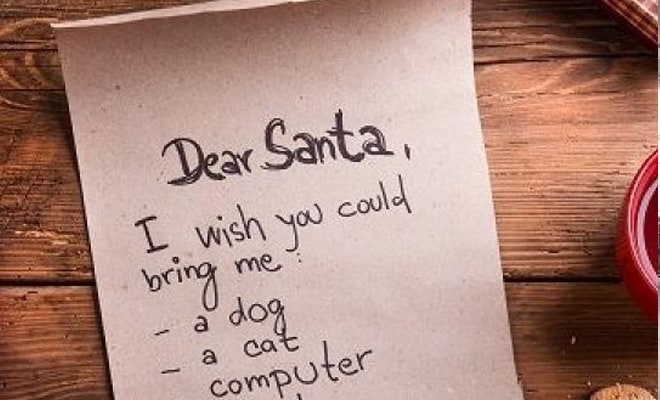 Dear Santa,
I wish you could
bring me :
- a dog
- a cat
computer